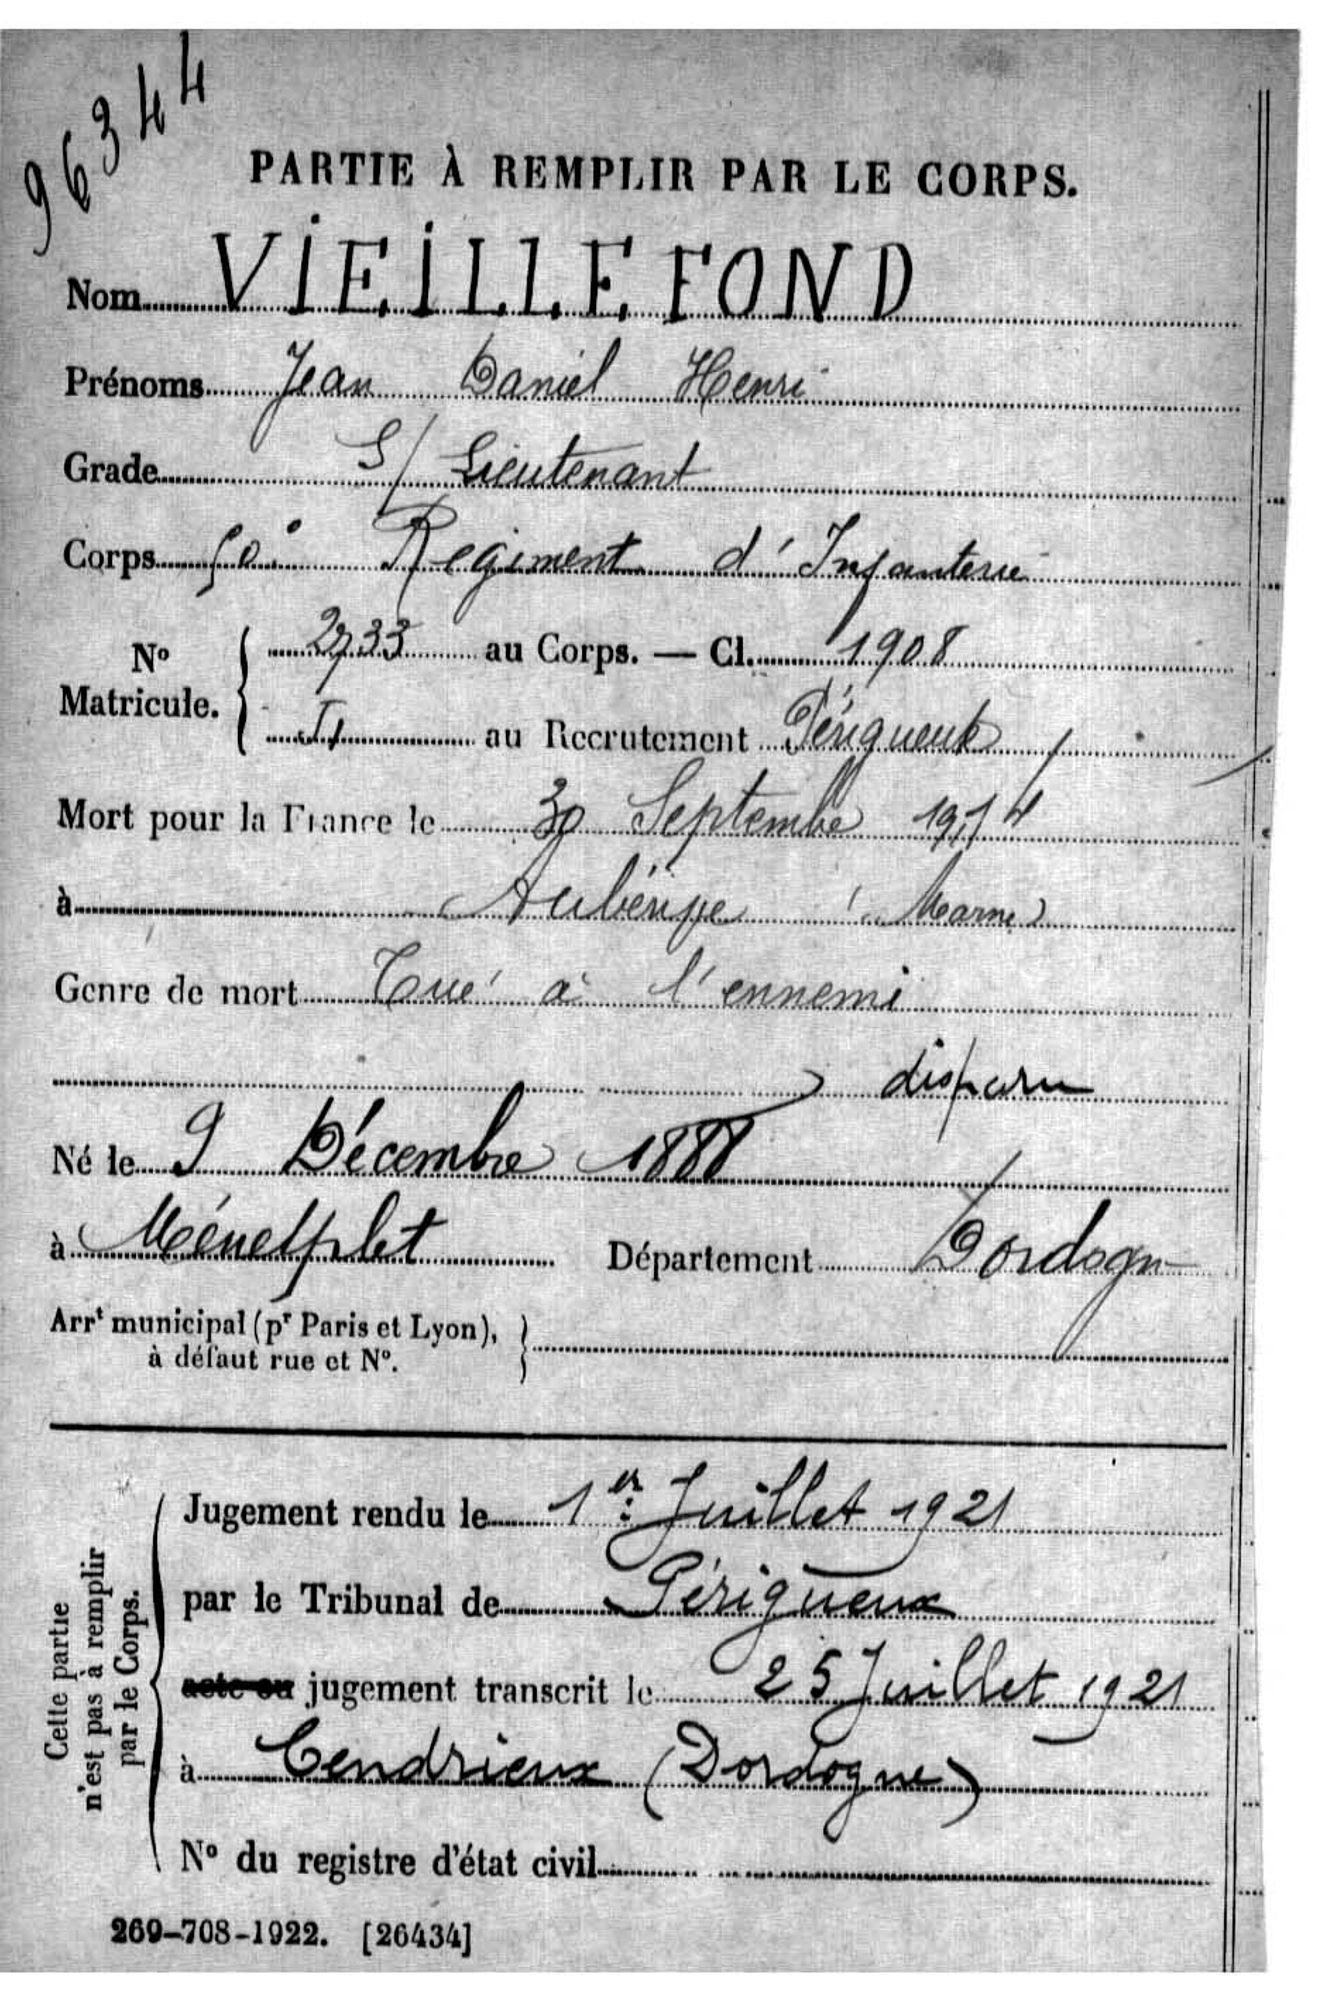 96344
PARTIE À REMPLIR PAR LE CORPS.
Nom VIEILLEFOND
Prénoms Jean Daniel Henri
Grade S/ Lieutenant
Corps 50e Regiment d'Infanterie
N° Matricule. { 2733 au Corps. — Cl. 1908
au Recrutement Périgueux
Mort pour la France le 30 Septembre 1914
à Aubérive (Marne)
Genre de mort Tué à l'ennemi
disparu
Né le 9 Décembre 1888
à Ménesplet Département Dordogne
Arrt municipal (pr Paris et Lyon),
à défaut rue et N°.
Cette partie
n'est pas à remplir
par le Corps.
Jugement rendu le 1er Juillet 1921
par le Tribunal de Périgueux
acte ou jugement transcrit le 25 Juillet 1921
à Cendrieux (Dordogne)
N° du registre d'état civil
269-708-1922. [26434]